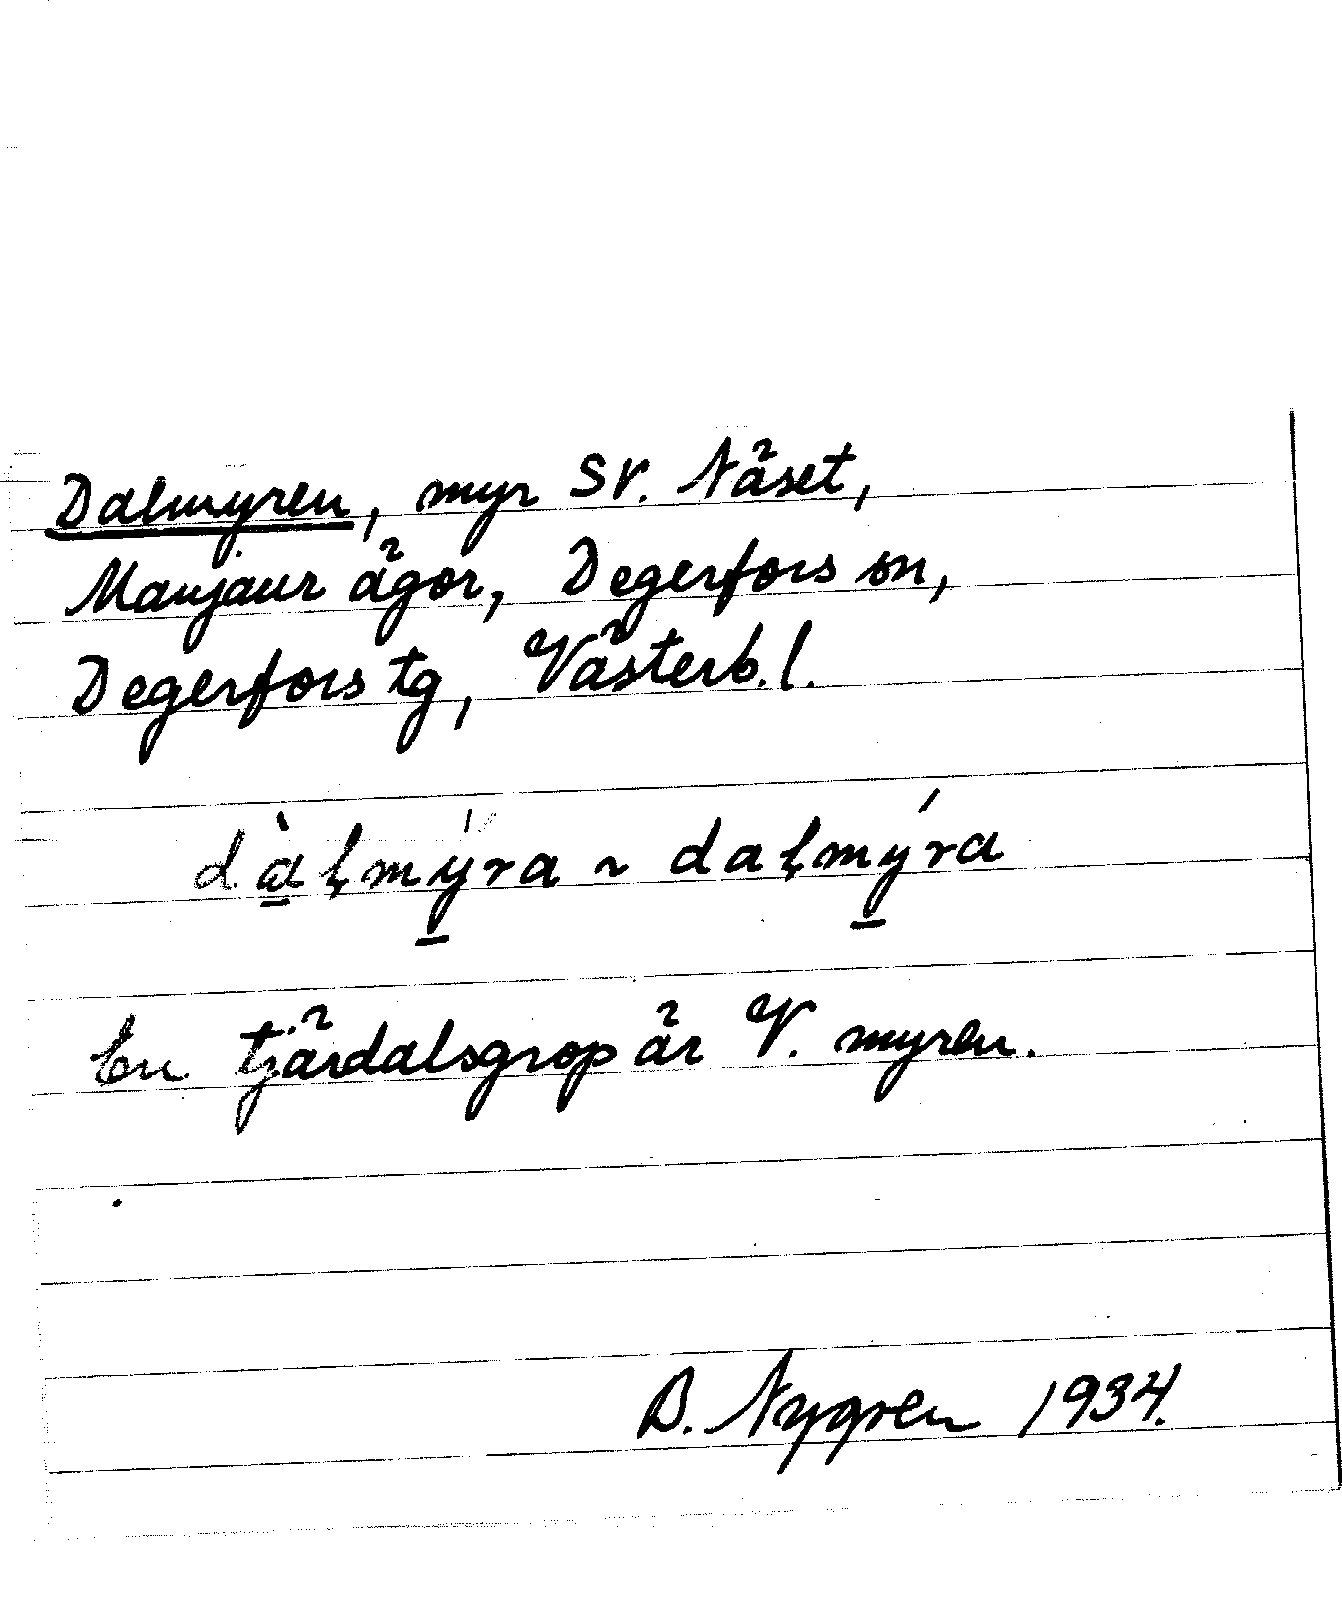 Dalmyren, myr SV. Näset,
Manjaur ägor, Degerfors sn,
Degerfors tg, Västerb. l.
dàḷmýra ~ daḷmýra
En tjärdalsgrop är V. myren.
B. Nygren 1934.